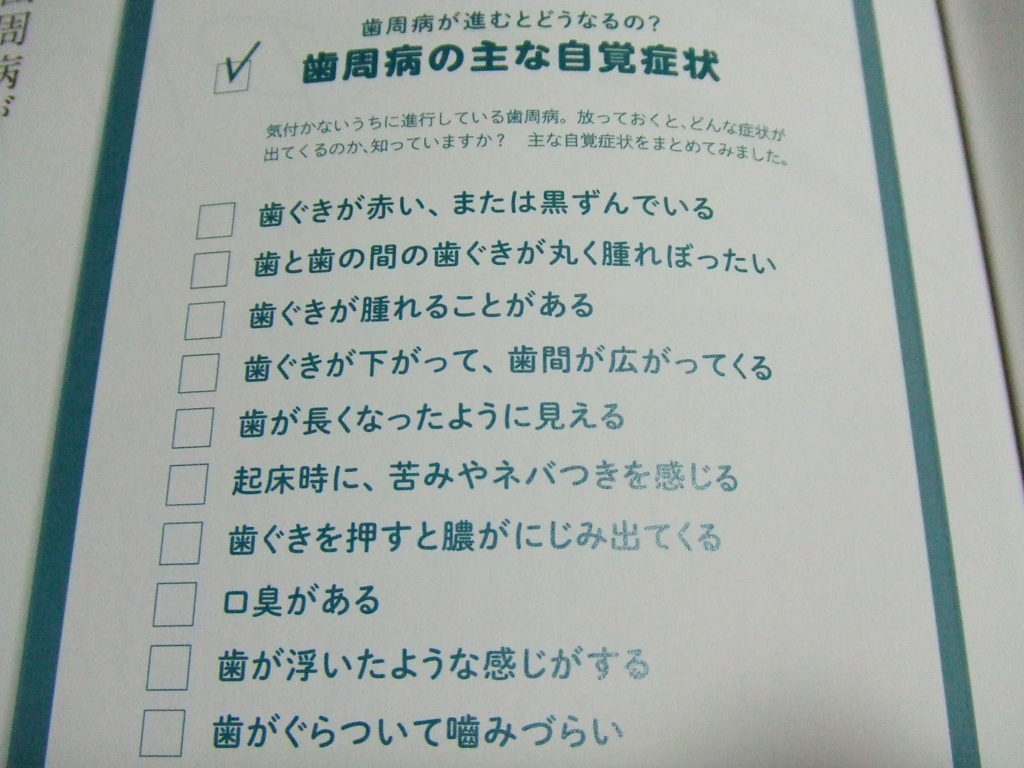 歯周病が進むとどうなるの?
歯周病の主な自覚症状
気付かないうちに進行している歯周病。放っておくと、どんな症状が
出てくるのか、知っていますか? 主な自覚症状をまとめてみました。
歯ぐきが赤い、または黒ずんでいる
歯と歯の間の歯ぐきが丸く腫れぼったい
歯ぐきが腫れることがある
歯ぐきが下がって、歯間が広がってくる
歯が長くなったように見える
起床時に、苦みやネバつきを感じる
歯ぐきを押すと膿がにじみ出てくる
口臭がある
歯が浮いたような感じがする
歯がぐらついて噛みづらい
周病が